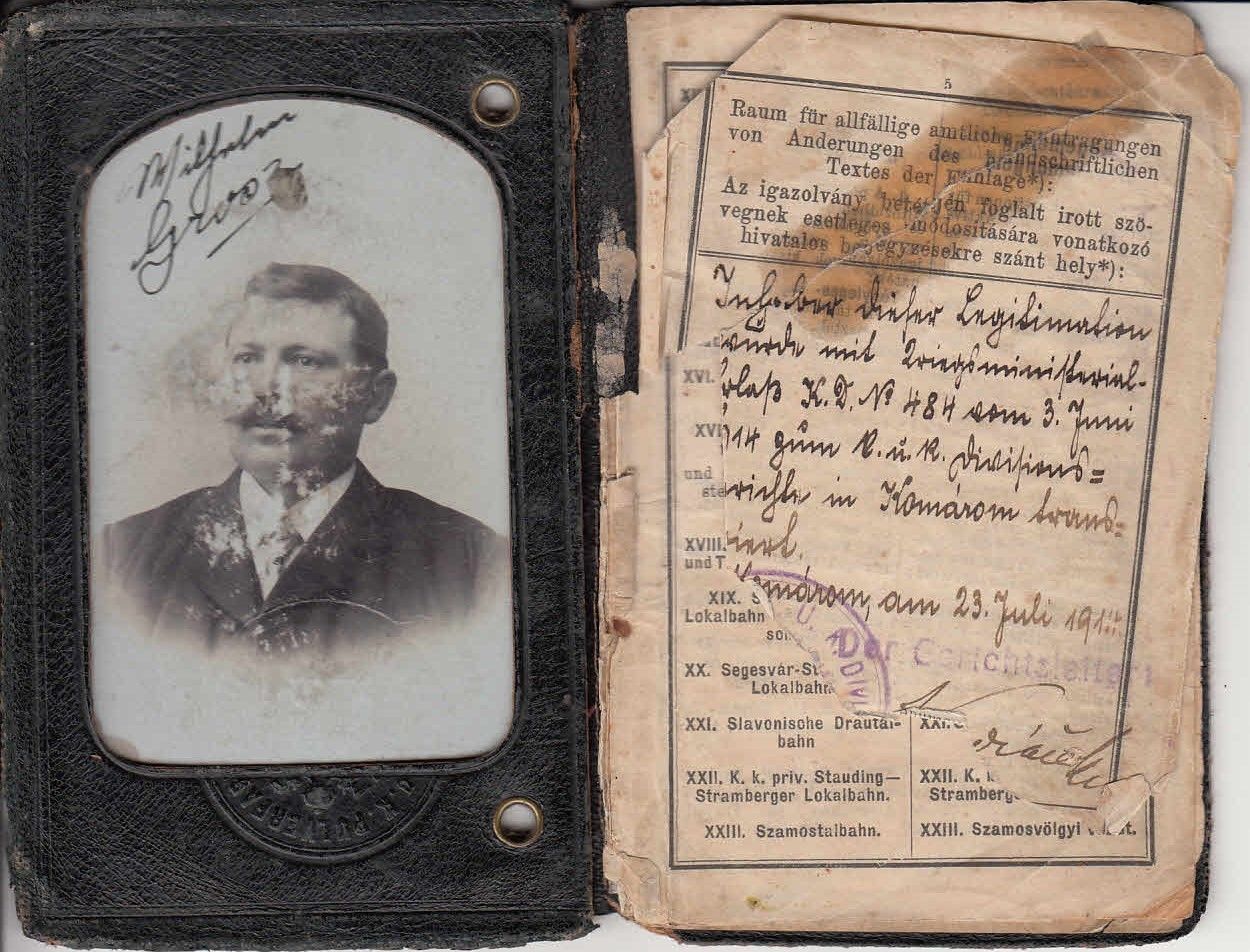 Wilhelm
5
Raum für allfällige amtliche Eintragungen
von Änderungen des handschriftlichen
Textes der Einlage*):
Az igazolvány betétjén foglalt irott szö-
vegnek esetleges módosítására vonatkozó
hivatalos bejegyzésekre szánt hely*):
Inhaber dieser Legitimation
wurde mit Kriegsministerial-
rlaß K.D. № 484 vom 3. Juni
914 zum k. u. k. Divisions=
richte in Komárom trans=
iert.
Komárom, am 23. Juli 191
Der Gerichtsleiter:
XVI.
XVI
und
ste
XVIII.
und T
XIX. S
Lokalbahn
so
XX. Segesvár-S
Lokalbahn
XXI. Slavonische Drautal-
bahn
XXII. K. k. priv. Stauding—
Stramberger Lokalbahn.
XXIII. Szamostalbahn.
XXI.
XXII. K. k
Stramberg
XXIII. Szamosvölgyi v.